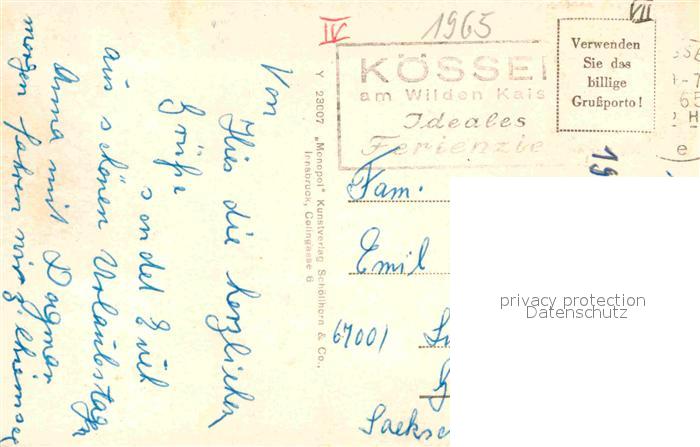 Von
Hies die herzlichen
Grüße
sendet Euch
aus schönen Urlaubstagen
Anna mit Dagmar
morgen fahren wir z. Chiemsee
Y 23007 „Monopol" Kunstverlag Schöllhorn & Co.,
Innsbruck, Colingasse 6
IV
1965
VII
KÖSSE
am Wilden Kais
Ideales
Ferienzie
Verwenden
Sie das
billige
Grußporto!
65
e
19
Fam.
Emil
6700/
Sachse
privacy protection
Datenschutz